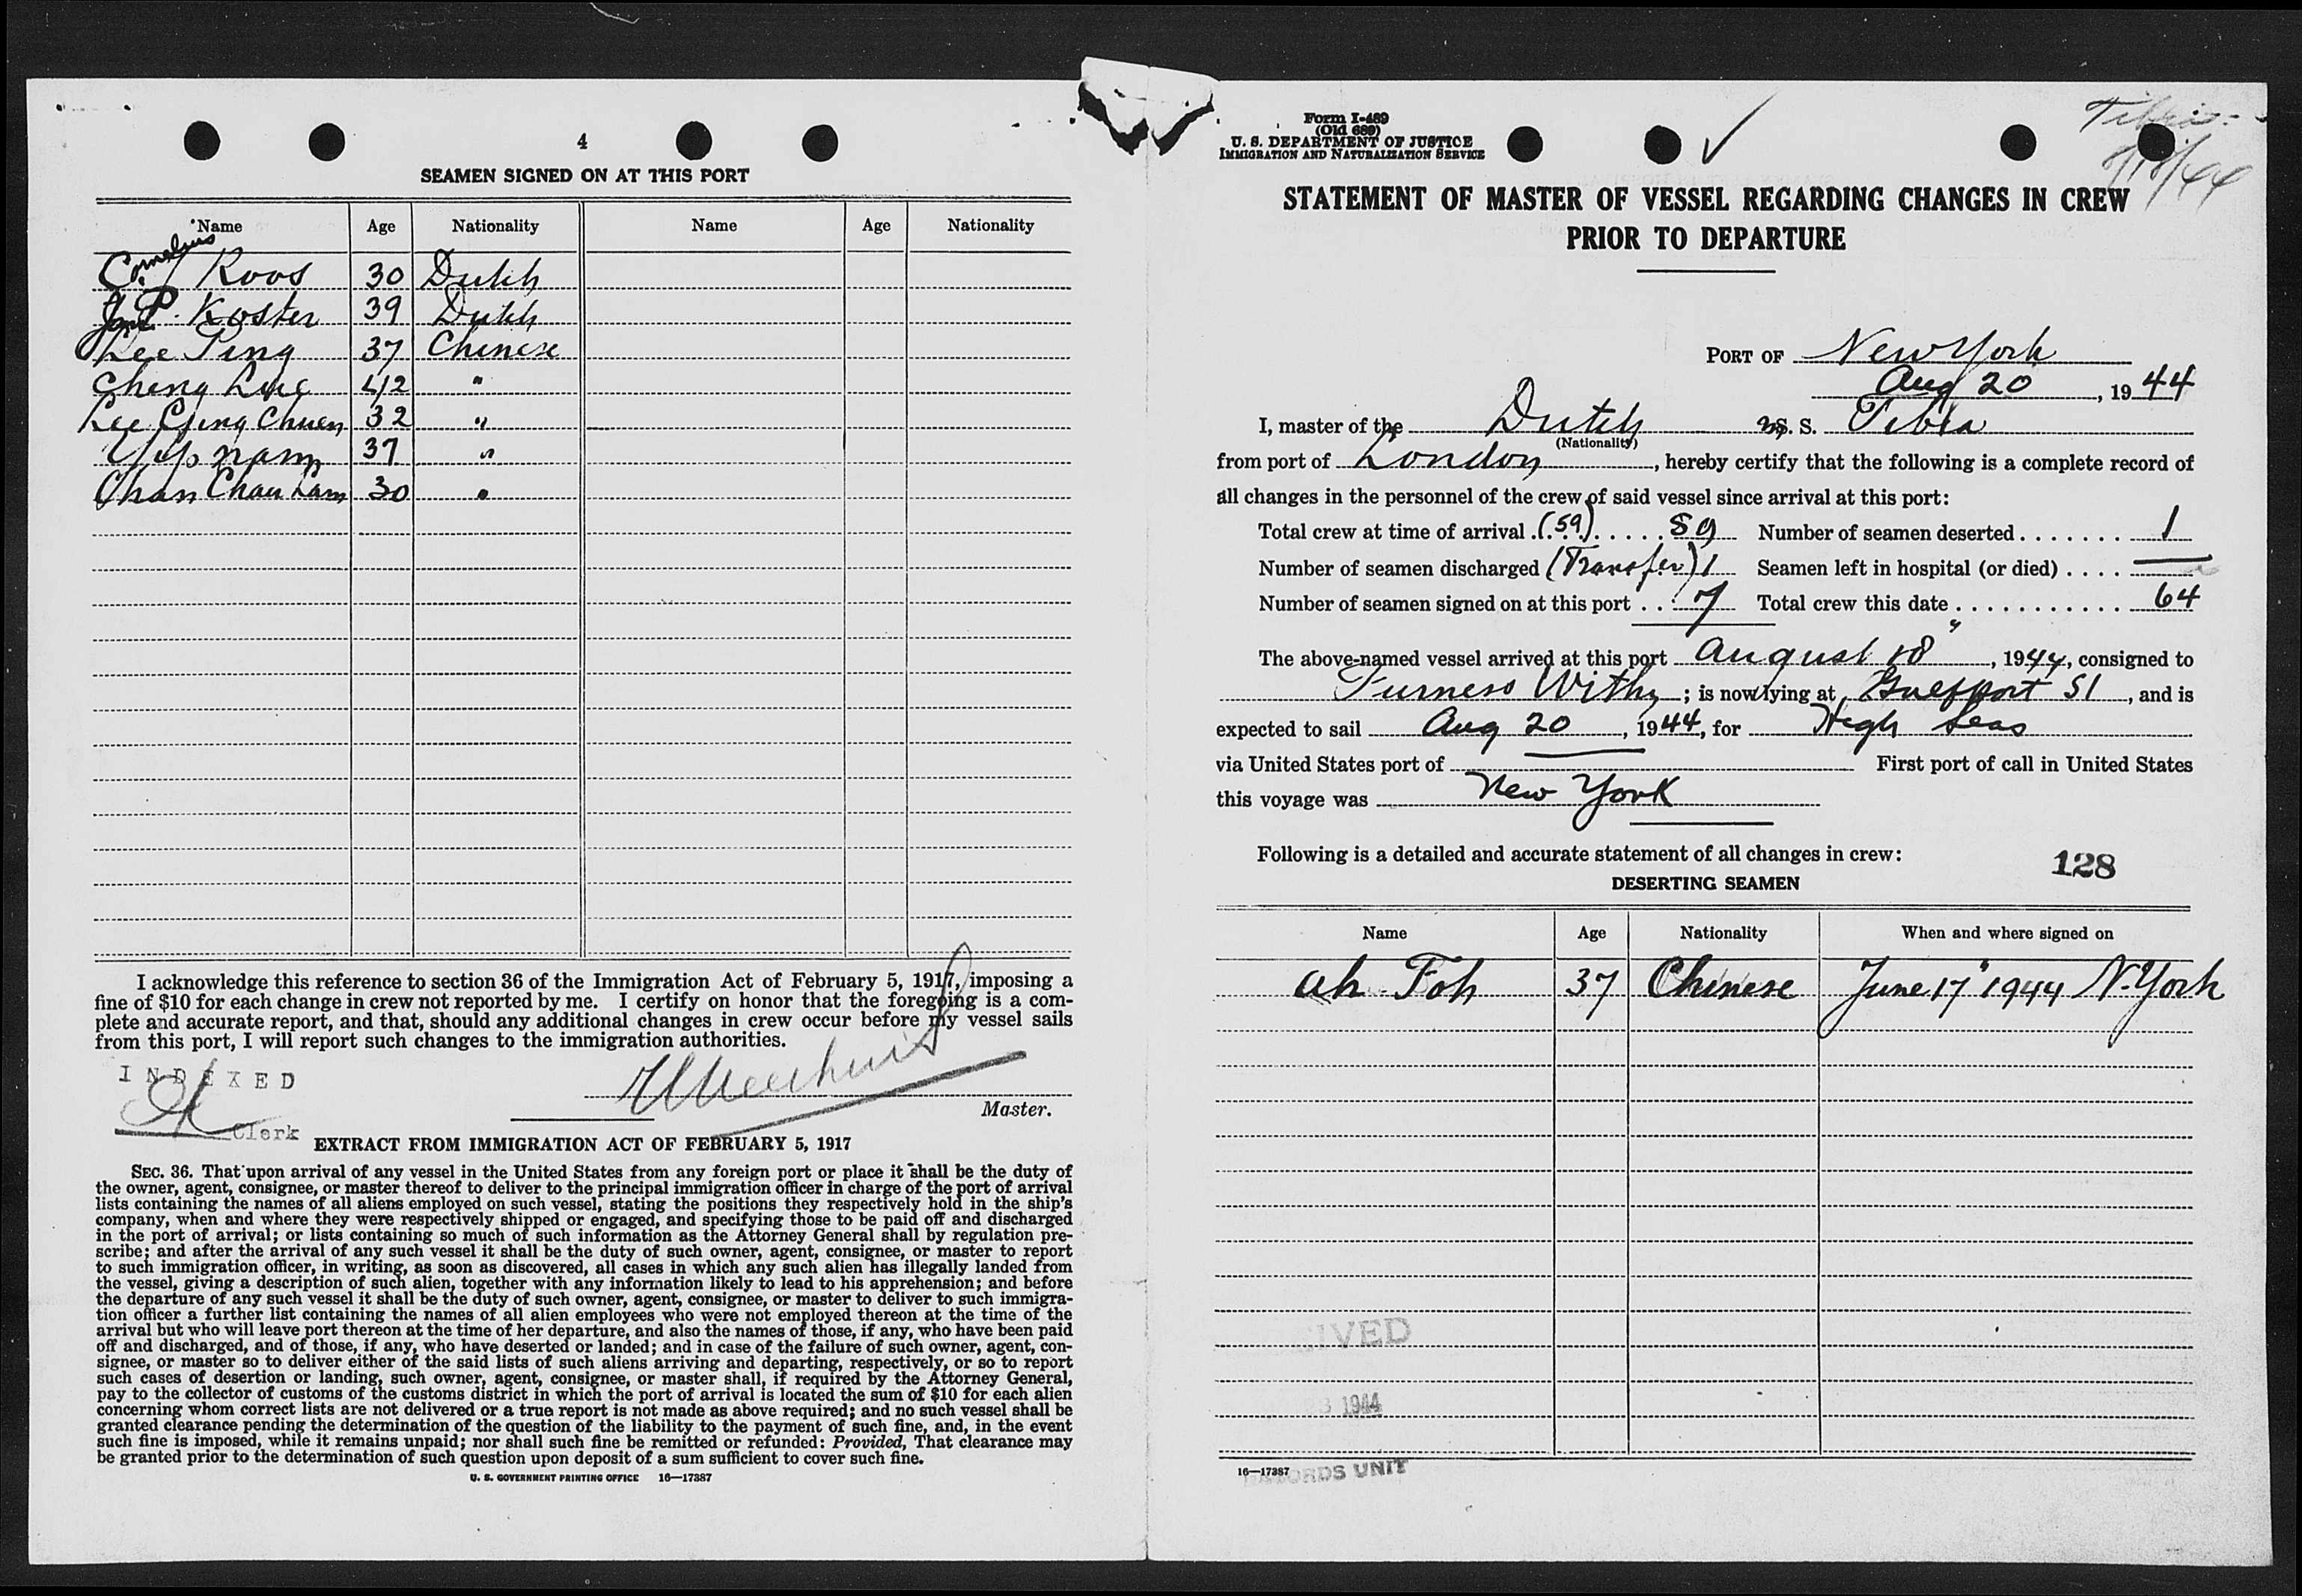 4
SEAMEN SIGNED ON AT THIS PORT
Name Age Nationality Name Age Nationality
Cornelius Roos 30 Dutch
P. Koster 39 Dutch
Lee Ping 37 Chinese
Cheng Luc 42 "
Lee Ching Chuen 32 "
Yip nam 37 "
Chan Chau Lam 30 "
I acknowledge this reference to section 36 of the Immigration Act of February 5, 1917, imposing a
fine of $10 for each change in crew not reported by me. I certify on honor that the foregoing is a com-
plete and accurate report, and that, should any additional changes in crew occur before my vessel sails
from this port, I will report such changes to the immigration authorities.
INDEXED
Clerk
Master.
EXTRACT FROM IMMIGRATION ACT OF FEBRUARY 5, 1917
SEC. 36. That upon arrival of any vessel in the United States from any foreign port or place it shall be the duty of
the owner, agent, consignee, or master thereof to deliver to the principal immigration officer in charge of the port of arrival
lists containing the names of all aliens employed on such vessel, stating the positions they respectively hold in the ship's
company, when and where they were respectively shipped or engaged, and specifying those to be paid off and discharged
in the port of arrival; or lists containing so much of such information as the Attorney General shall by regulation pre-
scribe; and after the arrival of any such vessel it shall be the duty of such owner, agent, consignee, or master to report
to such immigration officer, in writing, as soon as discovered, all cases in which any such alien has illegally landed from
the vessel, giving a description of such alien, together with any information likely to lead to his apprehension; and before
the departure of any such vessel it shall be the duty of such owner, agent, consignee, or master to deliver to such immigra-
tion officer a further list containing the names of all alien employees who were not employed thereon at the time of the
arrival but who will leave port thereon at the time of her departure, and also the names of those, if any, who have been paid
off and discharged, and of those, if any, who have deserted or landed; and in case of the failure of such owner, agent, con-
signee, or master so to deliver either of the said lists of such aliens arriving and departing, respectively, or so to report
such cases of desertion or landing, such owner, agent, consignee, or master shall, if required by the Attorney General,
pay to the collector of customs of the customs district in which the port of arrival is located the sum of $10 for each alien
concerning whom correct lists are not delivered or a true report is not made as above required; and no such vessel shall be
granted clearance pending the determination of the question of the liability to the payment of such fine, and, in the event
such fine is imposed, while it remains unpaid; nor shall such fine be remitted or refunded: Provided, That clearance may
be granted prior to the determination of such question upon deposit of a sum sufficient to cover such fine.
U. S. GOVERNMENT PRINTING OFFICE 16—17387
Form I-489
(Old 689)
U. S. DEPARTMENT OF JUSTICE
IMMIGRATION AND NATURALIZATION SERVICE
Tibia
8/18/44
STATEMENT OF MASTER OF VESSEL REGARDING CHANGES IN CREW
PRIOR TO DEPARTURE
PORT OF New York
Aug 20, 1944
I, master of the Dutch M. S. Tibia
(Nationality)
from port of London, hereby certify that the following is a complete record of
all changes in the personnel of the crew of said vessel since arrival at this port:
Total crew at time of arrival (59) 59 Number of seamen deserted 1
Number of seamen discharged (Transfer) 1 Seamen left in hospital (or died) —
Number of seamen signed on at this port 7 Total crew this date 64
The above-named vessel arrived at this port August 18", 1944, consigned to
Furness Withy; is now lying at Gulfport SI, and is
expected to sail Aug 20, 1944, for High Seas
via United States port of First port of call in United States
this voyage was New York
Following is a detailed and accurate statement of all changes in crew:
128
DESERTING SEAMEN
Name Age Nationality When and where signed on
Ah Foh 37 Chinese June 17" 1944 N. York
IVED
1944
16—17387
RDS UNIT